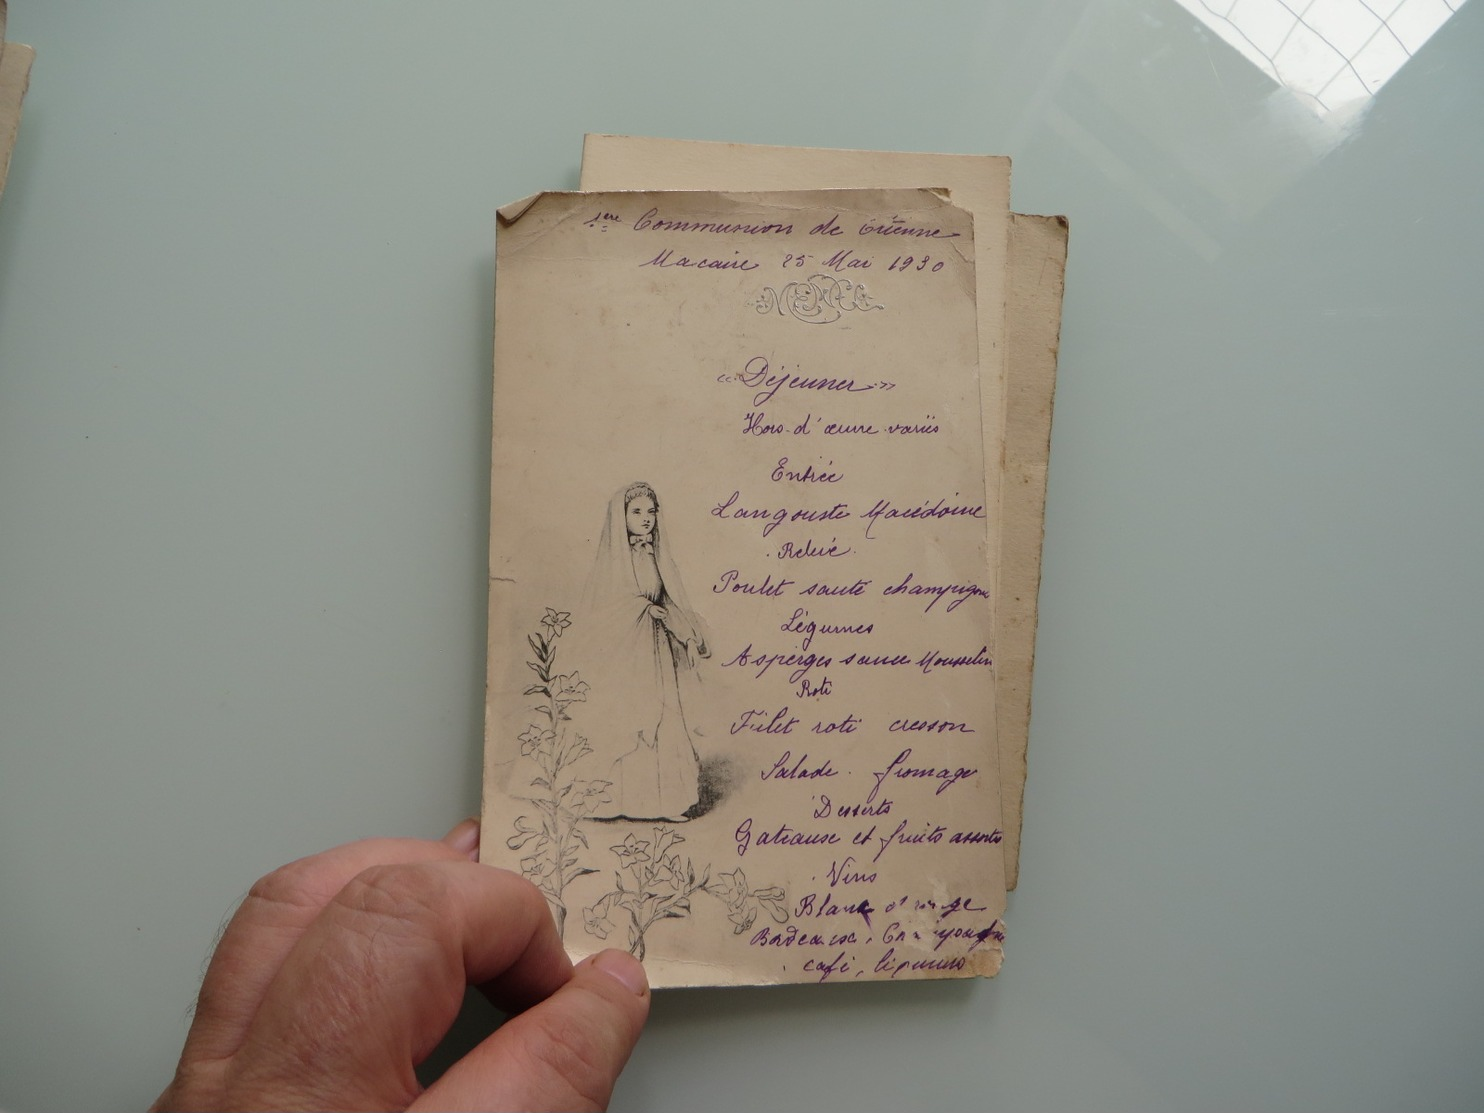 1ère Communion de Étienne
Macaire 25 Mai 1930
MENU
« Déjeuner »
Hors-d'œuvre variés
Entrée
Langouste Macédoine
Relevé
Poulet sauté champign
Légumes
Asperges sauce Mousselin
Roti
Filet roti cresson
Salade. fromage
Desserts
Gateaux et fruits assortis
Vins
Blanc et rouge
Bordeaux,
café, liqueurs